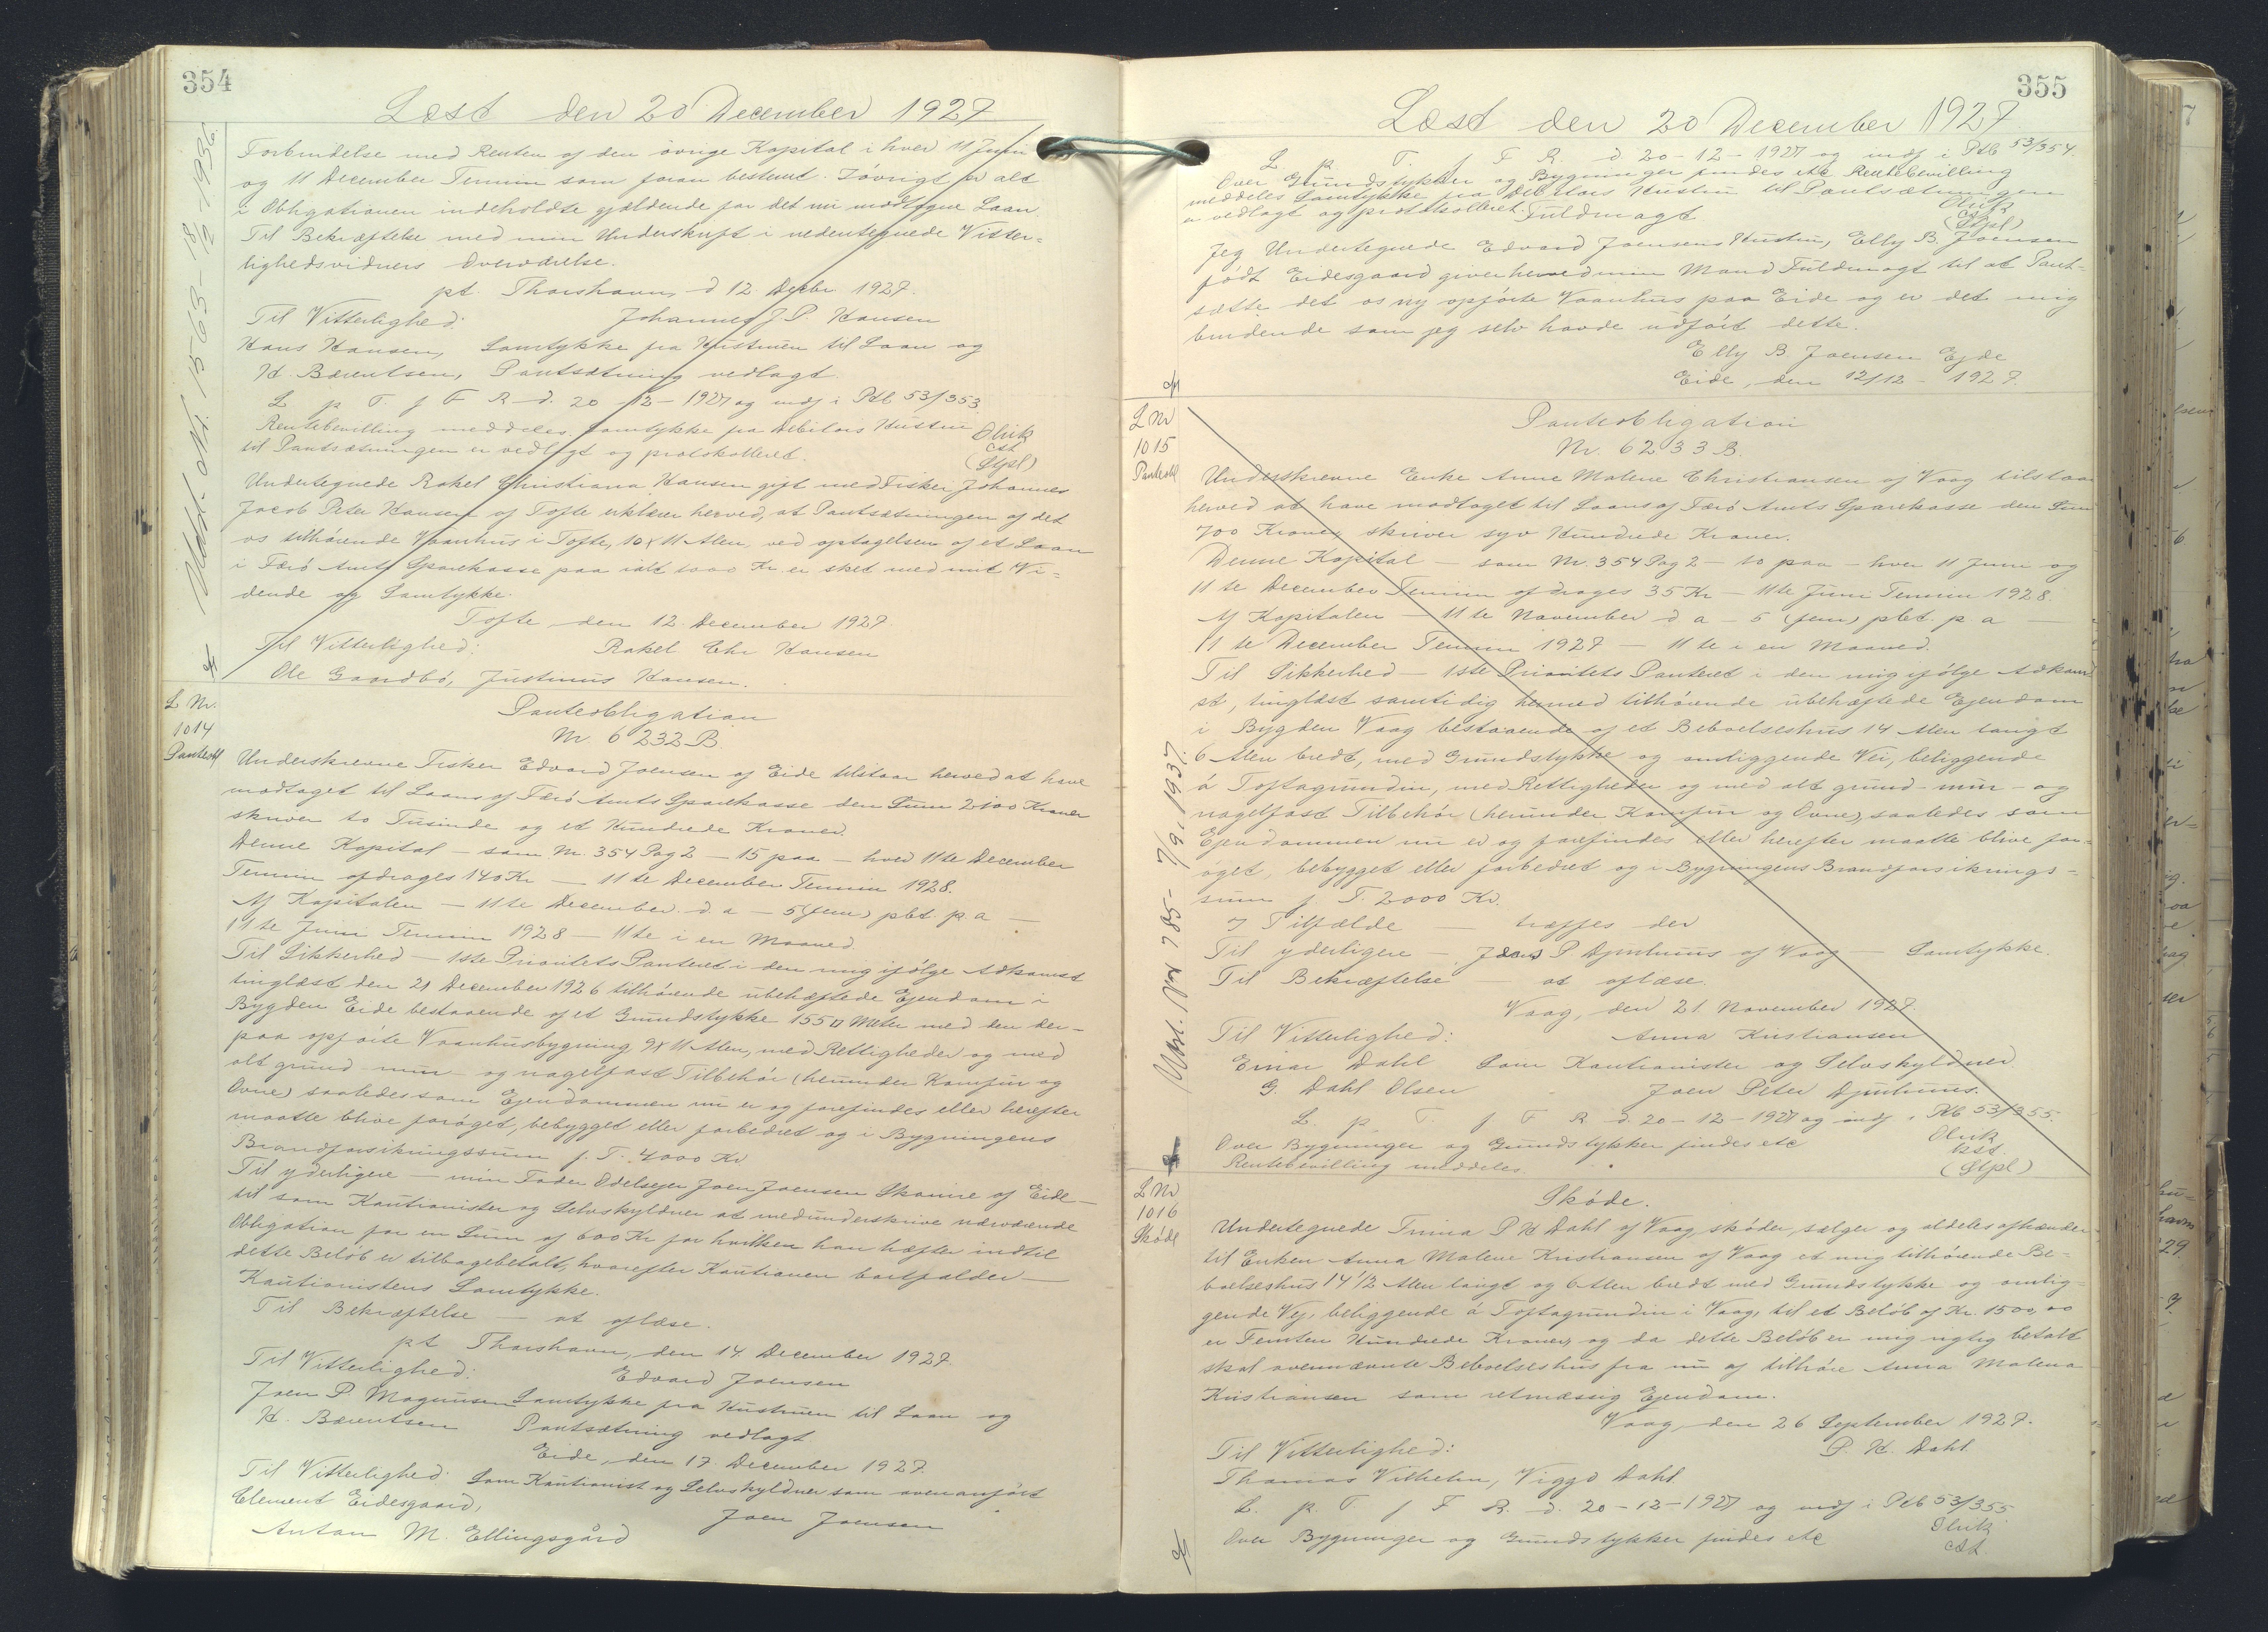 354
Læst den 20 December 1927
Forbindelse med Renten af den övrige Kapital i hver 11 Juni
og 11 December Termin som foran bestemt. Iövrigt er alt
i Obligationen indeholdte gjældende for det nu modtagne Laan.
Til Bekræftelse med min Underskrift i nedentegnede Vitter-
lighedsvidners Overværelse.
pt. Thorshavn, d 12. Decbr. 1927.
Til Vitterlighed: Johannes J. P. Hansen
Hans Hansen, Samtykke fra Hustruen til Laan og
H. Bærentsen, Pantsætning vedlagt.
L p T. f F R d. 20-12-1927 og indf i Ptb 53/353
Rentebevilling meddeles, Samtykke fra Debitors Hustru Olrik
til Pantsætningen er vedlagt og protokolleret. cst
(Stpl)
Undertegnede Rakel Christiana Hansen gift med Fisker Johannes
Jacob Peter Hansen af Tofte erklærer herved, at Pantsætningen af det
os tilhörende Vaanhus i Tofte, 10 x 11 Alen, ved optagelsen af et Laan
i Færö Amts Sparekasse paa ialt 1000 Kr er sket med mit Vi-
dende og Samtykke.
Tofte den 12. December 1927.
Til Vitterlighed: Rakel Chr Hansen
Ole Gaardbö, Justinus Hansen.
L Nr.
1014
Panteobl
Panteobligation
Nr 6232 B
Underskrevne Fisker Edvard Joensen af Eide tilstaar herved at have
modtaget til Laans af Færö Amts Sparekasse den Sum 2100 Kroner
skriver to Tusinde og et Hundrede Kroner.
Denne Kapital — som Nr. 354 Pag 2 — 15 paa — hver 11te December
Termin afdrages 140 Kr — 11te December Termin 1928.
Af Kapitalen — 11te December d. a — 5 (fem) pbt. p. a —
11te Juni Termin 1928 — 11te i en Maaned
Til Sikkerhed — 1ste Prioritets Panteret i den mig ifölge Adkomst
tinglæst den 21 December 1926 tilhörende ubehæftede Ejendom i
Bygden Eide bestaaende af et Grundstykke 155 □ Meter med den der-
paa opförte Vaanhusbygning 9 x 11 Alen, med Rettigheder og med
alt grund- mur- og nagelfast Tilbehör (herunder Komfur og
Ovne) saaledes som Ejendommen nu er og forefindes eller herefter
maatte blive foröget, bebygget eller forbedret og i Bygningens
Brandforsikringssum f. T. 4000 Kr
Til yderligere — min Fader Odelsejer Joen Joensen Skanire af Eide —
til som Kautionister og Selvskyldner at medunderskrive nærværende
Obligation for en Sum af 600 Kr for hvilken han hæfter indtil
dette Belöb er tilbagebetalt, hvorefter Kautionen bortfalder —
Kautionistens Samtykke.
Til Bekræftelse — at aflæse.
pt Thorshavn, den 14. December 1927.
Til Vitterlighed: Edvard Joensen
Joen P. Magnusen Samtykke fra Hustruen til Laan og
H. Bærentsen Pantsætning vedlagt
Eide, den 17. December 1927.
Til Vitterlighed: Som Kautionist og Selvskyldner som ovenanfört
Clement Eidesgaard, Joen Joensen
Anton M. Ellingsgård
Udsl. Nr. 1563- 1936
355
Læst den 20 December 1927.
L p. T. f F R. d 20-12-1927 og indf i Ptb 53/354.
Over Grundstykker og Bygninger findes etc Rentebevilling
meddeles Samtykke fra Debitors Hustru til Pantsætningen
er vedlagt og protokolleret. Olrik
Fuldmagt cst
(Stpl)
Jeg Undertegnede Edvard Joensens Hustru, Elly B. Joensen
födt Eidesgaard giver herved min Mand Fuldmagt til at Pant-
sætte det os ny opförte Vaanhus paa Eide og er det mig
bindende som jeg selv havde udfört dette.
Elly B. Joensen Ejde
Eide, den 12/12 - 1927.
L Nr
1015
Panteobl
Panteobligation
Nr. 6233 B.
Underskrevne Enke Anne Malene Christiansen af Vaag tilstaar
herved at have modtaget til Laans af Færö Amts Sparekasse den Sum
700 Kroner skriver syv Hundrede Kroner.
Denne Kapital — som Nr. 354 Pag 2 — 10 paa — hver 11 Juni og
11te December Termin afdrages 35 Kr — 11te Juni Termin 1928.
Af Kapitalen — 11te November d a — 5 (fem) pbt. p a —
11te December Termin 1927 — 11te i en Maaned.
Til Sikkerhed — 1ste Prioritets Panteret i den mig ifölge Adkom-
st, tinglæst samtidig hermed tilhörende ubehæftede Ejendom
i Bygden Vaag bestaaende af et Beboelseshus 14 Alen langt
6 Alen bredt, med Grundstykke og omliggende Vei, beliggende
á Toftagrundin, med Rettigheder og med alt grund- mur- og
nagelfast Tilbehör (herunder Komfur og Ovne) saaledes som
Ejendommen nu er og forefindes eller herefter maatte blive for-
öget, bebygget eller forbedret og i Bygningens Brandforsikrings-
sum f. T. 2000 Kr.
I Tilfælde — træffes der
Til yderligere — Joen P Djurhuus af Vaag — Samtykke.
Til Bekræftelse — at aflæse.
Vaag, den 21. November 1927.
Til Vitterlighed: Anna Kristiansen
Einar Dahl Som Kautionister og Selvskyldner
G. Dahl Olsen Joen Peter Djurhuus.
L. p. T f F R d. 20-12-1927 og indf i Ptb 53/355.
Over Bygninger og Grundstykker findes etc Olrik
Rentebevilling meddeles. cst.
(Stpl)
Udsl. Nr 785- 7/9. 1937.
L Nr
1016
Sköde
Sköde.
Undertegnede Trina P H Dahl af Vaag, sköder, sælger og aldeles afhænder
til Enken Anna Malene Kristiansen af Vaag et mig tilhörende Be-
boelseshus 14 1/2 Alen langt og 6 Alen bredt med Grundstykke og omlig-
gende Vej, beliggende á Toftagrundin i Vaag, til et Belöb af Kr. 1500,00
er Femten Hundrede Kroner, og da dette Belöb er mig rigtig betalt
skal ovennævnte Beboelseshus fra nu af tilhöre Anna Malena
Kristiansen som retmæssig Ejendom.
Vaag, den 26 September 1927.
Til Vitterlighed: P. H. Dahl
Thomas Vilhelm, Viggo Dahl
L. p. T. f F R. d. 20-12-1927 og indf i Ptb 53/355
Over Bygninger og Grundstykker findes etc Olrik
cst.